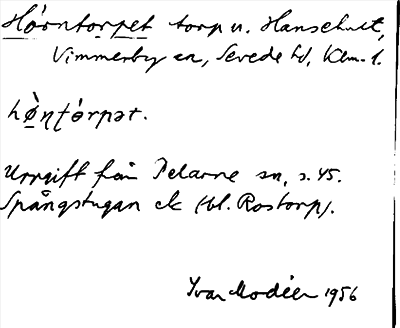 Höorntorpet torp u. Hanshult,
Vimmerby sn, Sevede hd, Klm. l.
hø̀ɳʈórpət.
Uppgift från Pelarne sn, s. 45.
Spångstugan etc (bl. Rostorp).
Ivar Modéer 1956